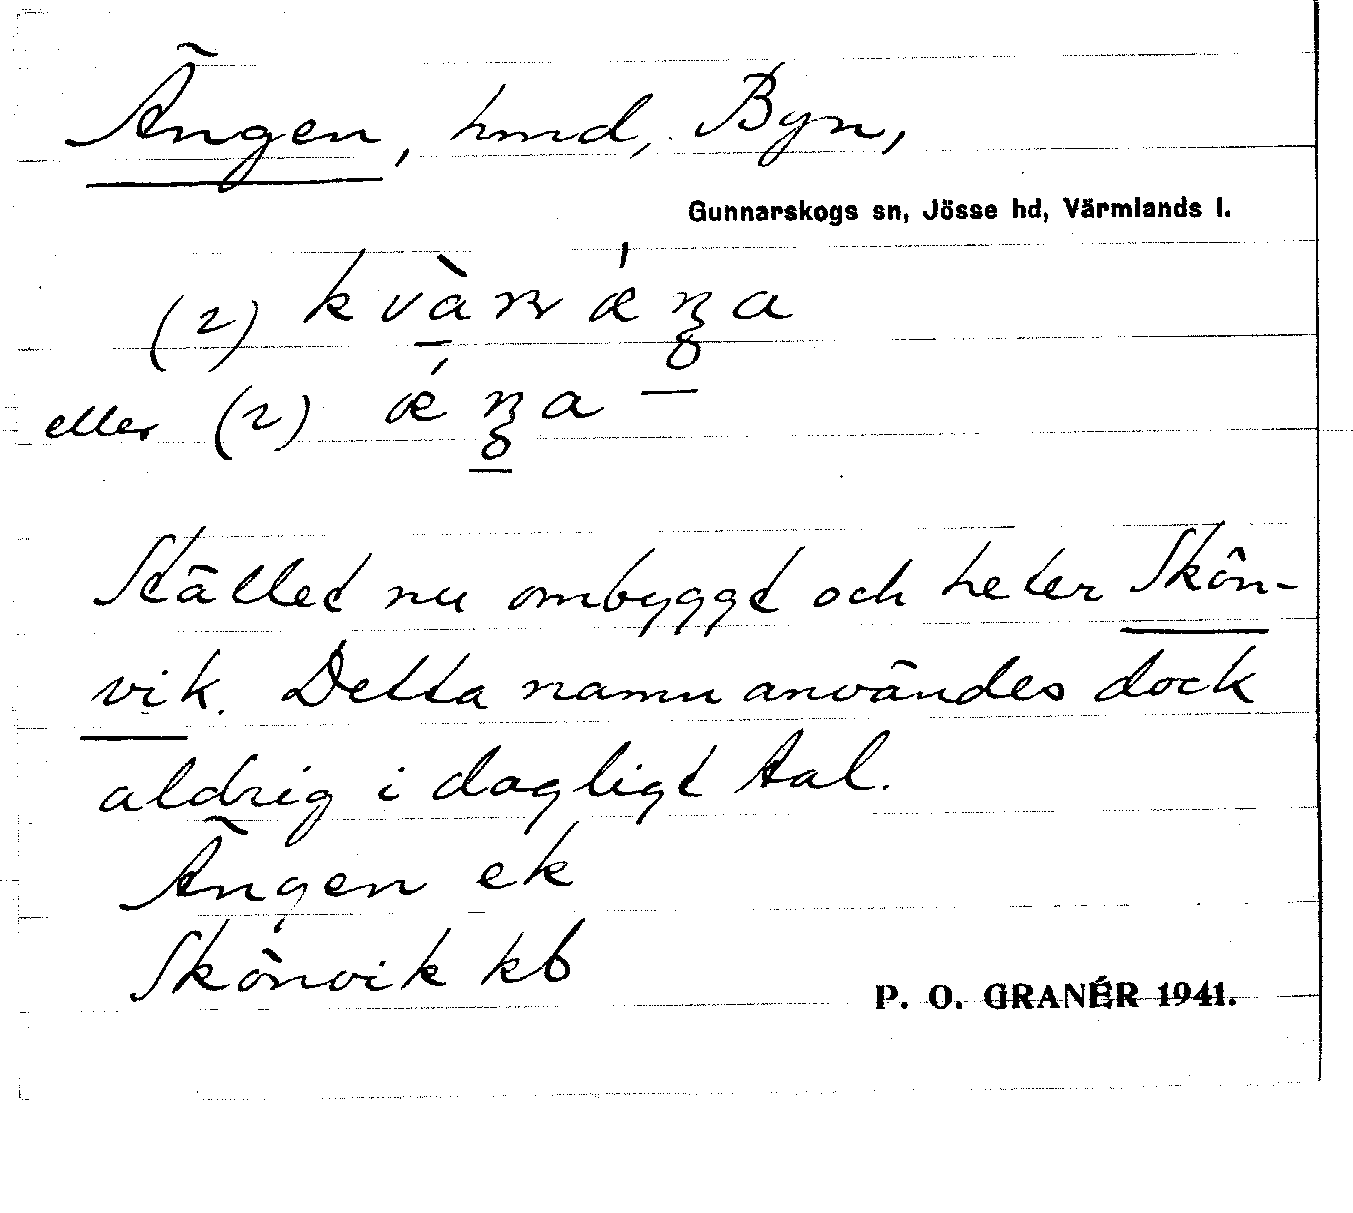 Ängen, hmd, Byn,
Gunnarskogs sn, Jösse hd, Värmlands l.
(2) kvàn ǽŋa
eller (2) ǽŋa
Stället nu ombyggt och heter Skön-
vik. Detta namn användes dock
aldrig i dagligt tal.
Ängen ek
Skönvik kb
P. O. GRANÉR 1941.